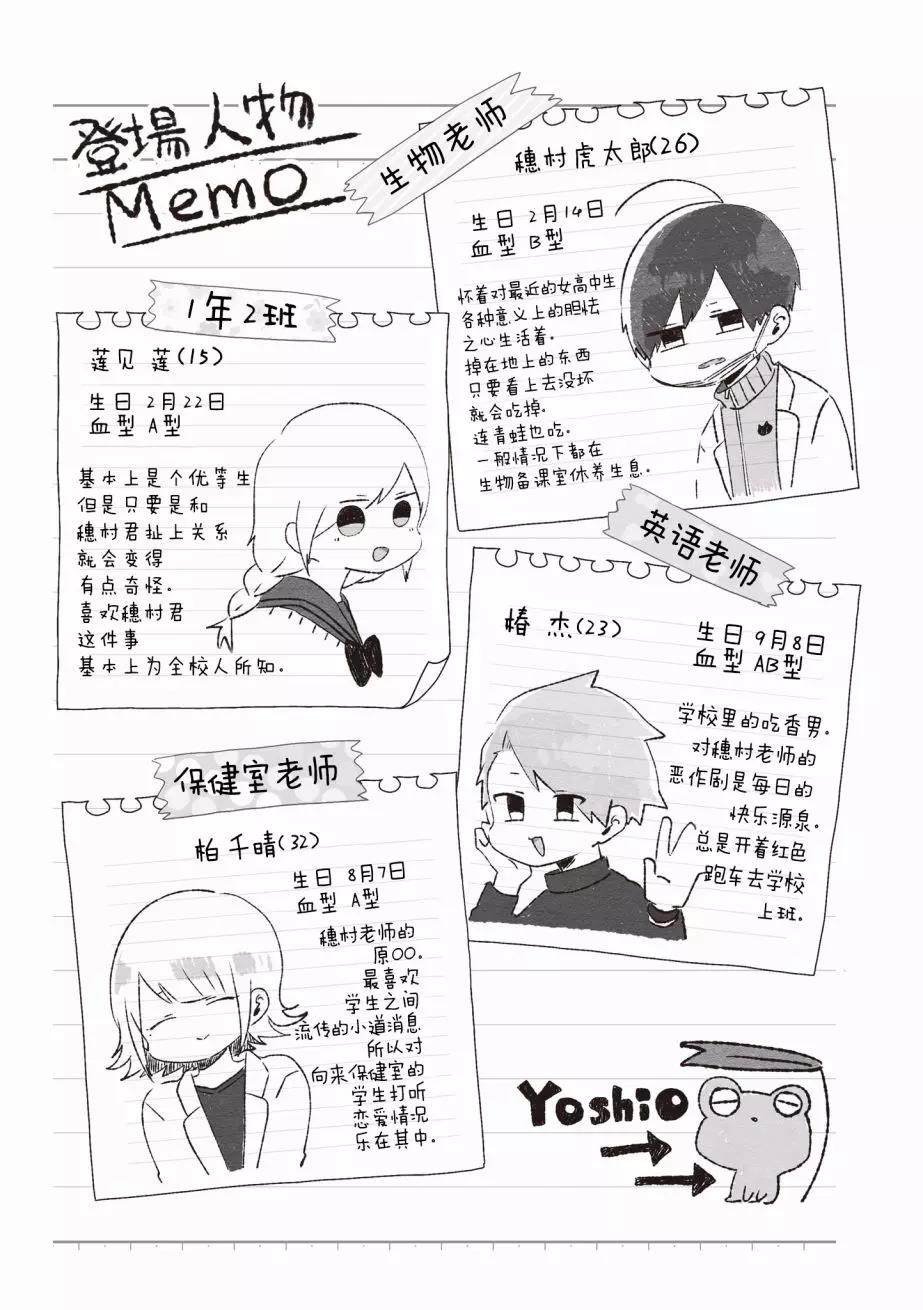 登場人物
Memo
生物老师
穗村虎太郎(26)
生日 2月14日
血型 B型
怀着对最近的女高中生
各种意义上的胆怯
之心生活着.
掉在地上的东西
只要看上去没坏
就会吃掉.
连青蛙也吃.
一般情况下都在
生物备课室休养生息.
1年2班
莲见 莲(15)
生日 2月22日
血型 A型
基本上是个优等生
但是只要是和
穗村君扯上关系
就会变得
有点奇怪.
喜欢穗村君
这件事
基本上为全校人所知.
英语老师
椿 杰(23)
生日 9月8日
血型 AB型
学校里的吃香男.
对穗村老师的
恶作剧是每日的
快乐源泉.
总是开着红色
跑车去学校
上班.
保健室老师
柏 千晴(32)
生日 8月7日
血型 A型
穗村老师的
原〇〇.
最喜欢
学生之间
流传的小道消息
所以对
向来保健室的
学生打听
恋爱情况
乐在其中.
Yoshio